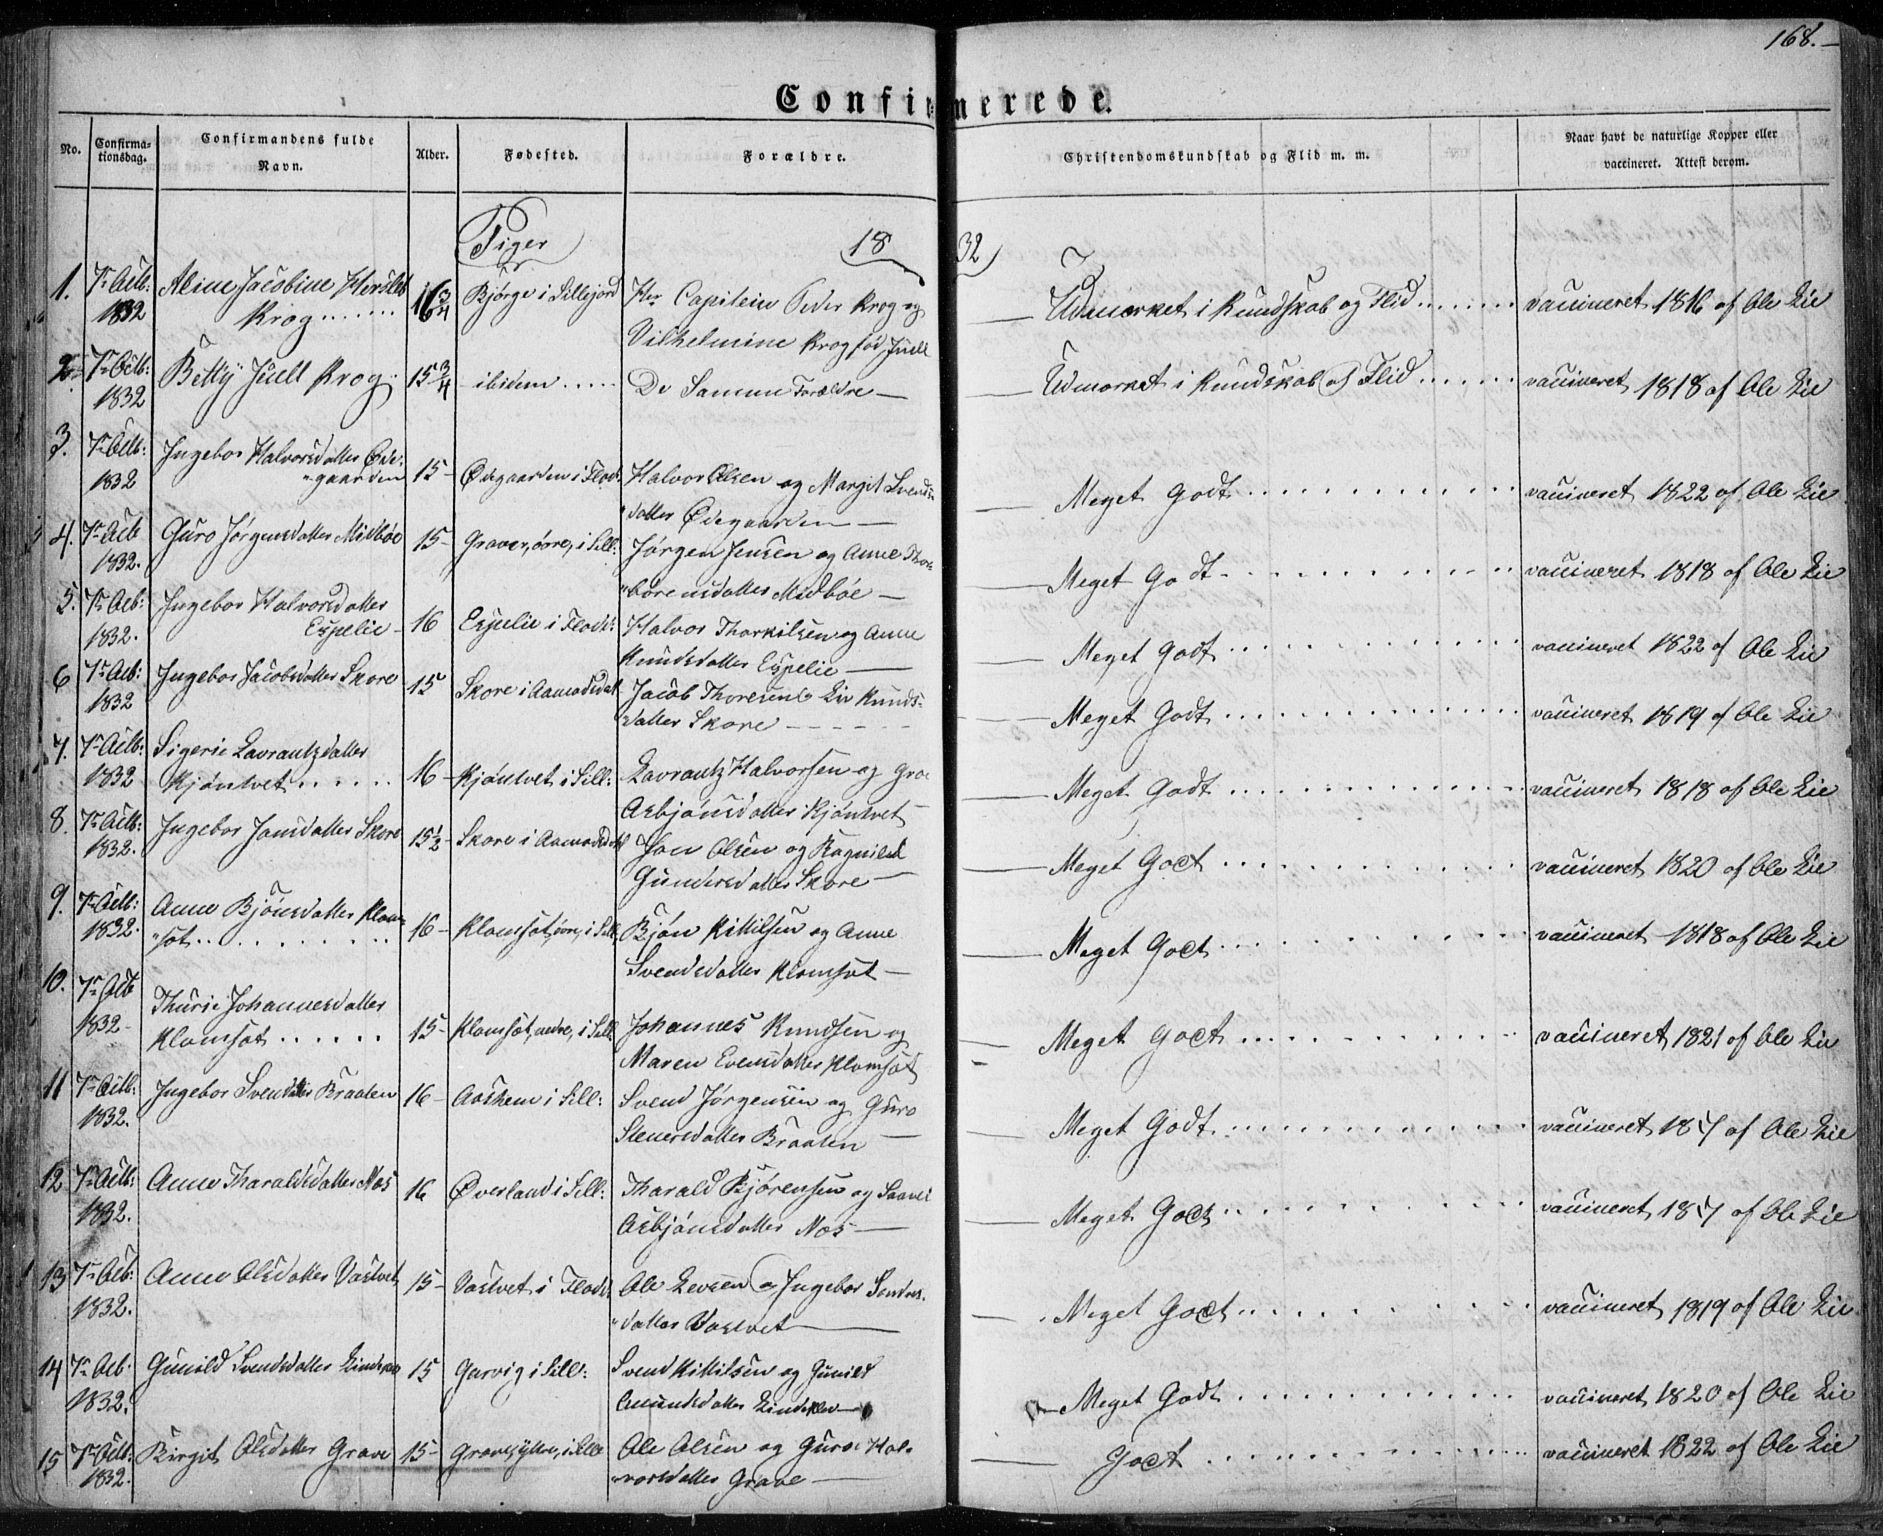 168.
Confirmerede.
No. Confirmationsdag. Confirmandens fulde Navn. Alder. Fødested. Forældre. Christendomskundskab og Flid m. m. Naar havt de naturlige Kopper eller vaccineret. Attest derom.
Piger 1832
1. 7r Octb: Aline Jacobine Hersleb 16 3/4 Bjørge i Sillejord Hr Capitein Peder Krog og Udmærket i Kundskab og Flid vaccineret 1816 af Ole Lie
1832 Krog Vilhelmine Krog fød Juell
2. 7r Octb: Betty Juell Krog 15 3/4 ibidem De Samme Forældre Udmærket i Kundskab og Flid vaccineret 1818 af Ole Lie
1832
3. 7r Octb: Ingebor Halvorsdatter Øde- 15 Ødegaarden i Flods: Halvor Olsen og Margit Svends- Meget Godt vaccineret 1822 af Ole Lie
1832 gaarden datter Ødegaarden
4. 7r Octb Guro Jørgensdatter Midbøe 15 Graver, øvre, i Sill: Jørgen Jensen og Anne Thor- Meget Godt vaccineret 1818 af Ole Lie
1832. datter Midbøe
5. 7r Octb: Ingebor Halvorsdatter 16 Espelie i Flods: Halvor Thorkilsen og Anne Meget Godt vaccineret 1822 af Ole Lie
1832. Espelie Knudsdatter Espelie
6 7r Octb: Ingebor Jacobsdatter Skore 15 Skore i Aamodsdal Jacob Thoresen & Liv Knuds- Meget Godt vaccineret 1819 af Ole Lie
1832 datter Skore
7. 7r Octb: Sigerie Lavrantzdatter 16 Kjøntvet i Sill: Lavrantz Halvorsen og Gro Meget Godt vaccineret 1818 af Ole Lie
1832 Kjøntvet Asbjønsdatter Kjøntvet
8. 7r Octb: Ingebor Jonsdatter Skore 15 1/2 Skore i Aamodsdal Jon Olsen og Ragnild Meget Godt vaccineret 1820 af Ole Lie
1832. Gundersdatter Skore
9. 7r Octb: Anne Bjønsdatter Klom- 16 Klomsæt, øvre, i Sill. Bjøn Kittilsen og Anne Meget Godt vaccineret 1818 af Ole Lie
1832. sæt Svendsdatter Klomsæt
10. 7r Octb Thurie Johannesdatter 15 Klomsæt, nedre, i Sill. Johannes Knudsen og Meget Godt vaccineret 1821 af Ole Lie
1832 Klomsæt Maren Evensdatter Klomsæt
11 7r Octb: Ingebor Svendsdatter Braaten 16 Aashem i Sill: Svend Jørgensen og Guro Meget Godt vaccineret 1817 af Ole Lie
1832. Stenersdatter Braaten
12 7r Octb: Anne Tharaldsdatter Næs 16 Øverland i Sill: Tharald Bjørensen og Saavei Meget Godt vaccineret 1817 af Ole Lie
1832. Asbjønsdatter Næs
13 7r Octb: Anne Olsdatter Vastvet 15 Vastvet i Flods: Ole Levsen og Ingebor Sondres- Meget Godt vaccineret 1819 af Ole Lie
1832. datter Vastvet
14 7r Octb. Gunild Svendsdatter Lindeklev 15 Garvig i Sill: Svend Kittilsen og Gunild Meget Godt vaccineret 1820 af Ole Lie
1832. Amundsdatter Lindeklev
15 7r Octb: Birgit Olsdatter Grave 15 Grave, yttre, i Sille Ole Olsen og Guro Hal- Godt vaccineret 1822 af Ole Lie
1832. vorsdatter Grave